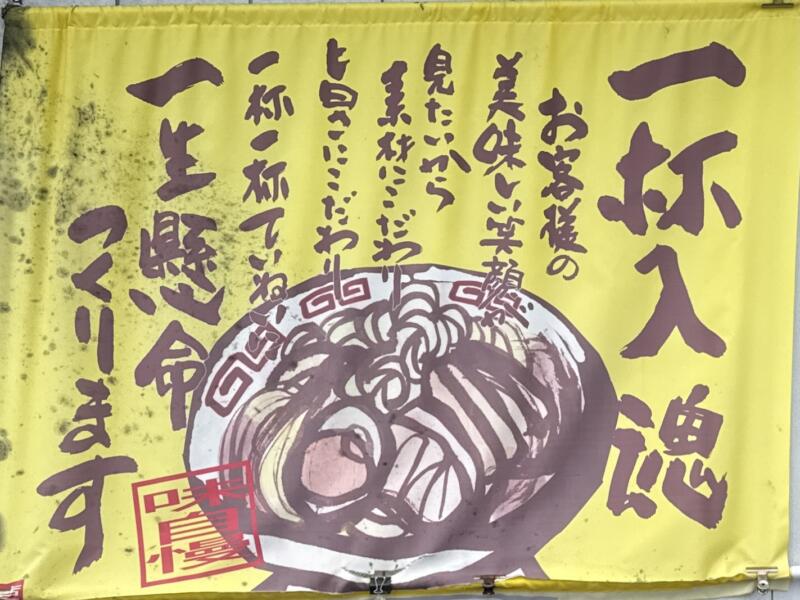 一杯入魂
お客様の
美味しい笑顔が
見たいから
素材にこだわり
旨さにこだわり
一杯一杯ていねいに
一生懸命
つくります
味自慢